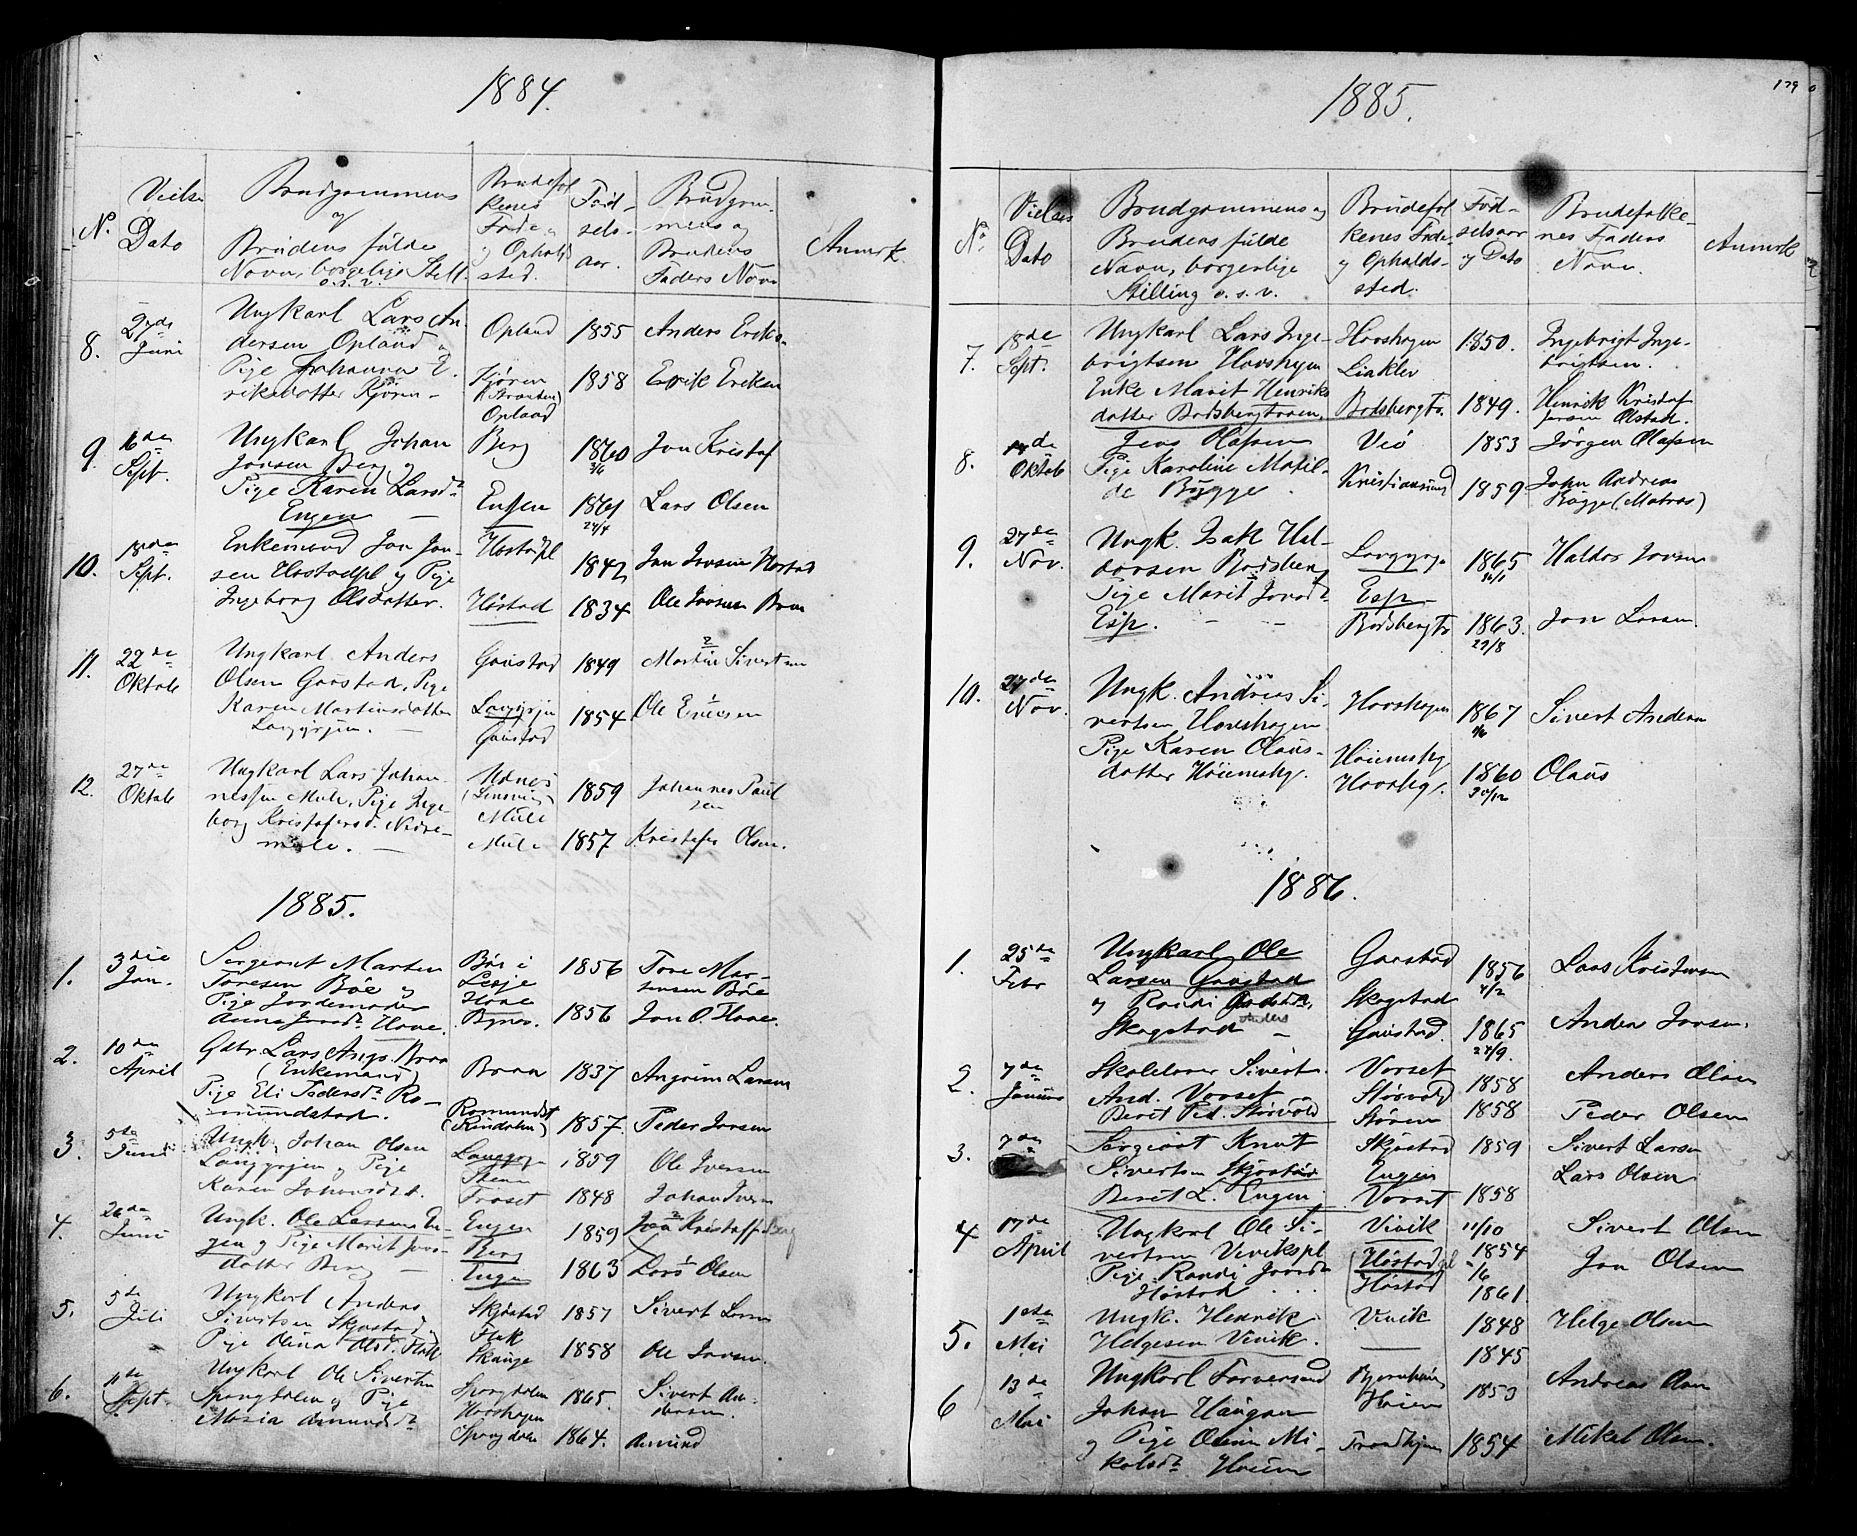 1884.
No.
Vielse
Dato
Brudgommens
og
Brudens fulde
Navn, borgerlige Still.
o.s.v.
Brudefol
kenes
Føde
og Opholds
sted.
Fød-
sels-
aar.
Brudgom-
mens og
Brudens
Faders Navn
Anmrk.
8.
27de
Juni
Ungkarl Lars An-
dersen Opland og
Pige Johanna E-
riksdatter Kjøren -
Opland
Kjøren
Opland
1855
1858
Anders Eriks.
Erik Eriksen
9.
16de
Sept.
Ungkarl Johan
Jonsen Berg og
Pige Karen Larsdt
Engen -
Berg
Engen
1860
3/6
1861
24/4
Jon Kristof
Lars Olsen
10.
18de
Sept.
Enkemand Jon Jon-
sen Hostadpl og Pige
Ingeborg Olsdatter.
Hostadpl
Høstad
1842
1834
Jon Jonsen Hostad
Ole Jonsen
11.
22de
Oktob
Ungkarl Anders
Olsen Gaustad, Pige
Karen Martinsdatter
Langørjen. -
Gaustad
Langørjen
Gaustad
1849
1854
Martin Sivertsen
Ole Ericsen
12.
27de
Oktob
Ungkarl Lars Johan-
nessen Mule, Pige Inge-
borg Kristofersd. Nedre-
mule. -
Mule
Mule
1859
1857
Johannes Paul
sen
Kristofer Olsen.
1885.
1.
3die
Jan.
Sergeant Morten
Toresen Böe og
Pige Jordemoder
Anna Jonsdt Hove.
Böe i
Lesje
Hove
Bynes.
1856
1856
Tore Mor-
tensen Böe
Jon O. Hove.
2.
10de
April
Gdbr Lars Angr.
(Enkemand)
Pige Eli Pedersdt Ro-
mundstad.
Romundst
(Rindalen)
1837
1857.
Angrim Larsen
Peder Jonsen
3.
5te
Juni
Ungk. Johan Olsen
Langørjen og Pige
Karen Johansdt.
Langørje
1859
1848
Ole Iversen
Johan Iversen
4.
26de
Juni
Ungk. Ole Larsen En-
gen og Pige Marit Jons-
datter Berg -
Engen
Berg
Engen
1859
1863
Jon Kristoffers Berg
Lars Olsen
5.
5te
Juli
Ungkarl Anders
Sivertsen Skjøstad
Pige Olina Olsdt. Flak
Skjøstad
Flak
Skauge
1857
1858
Sivert Larsen
Ole Jonsen.
6.
11te
Sept.
Ungkarl Ole Sivertsen
Spongdalen og Pige
Maria Amundsdt
Spongdalen
Hovshagen
Spongdalen
1865.
1864.
Sivert An-
dersen.
Amund
1885.
179
No.
Vielses
Dato
Brudgommens og
Brudens fulde
Navn, borgerlige
Stilling o.s.v.
Brudefol
kenes Føde
og Opholds-
sted.
Fød-
selsaar
og Dato
Brudefolke-
nes Faders
Navn.
Anmrk
7.
18de
Sept.
Ungkarl Lars Inge-
brigtsen Hovshagen
Enke Marit Henriks
datter Bodsbergtrøen.
Hovshagen
Liaklev
Bodsbergtr.
1850.
1849.
Ingebrigt Inge-
brigtsen.
Henrik Kristof
fersen Olstad.
8.
Oktob
Jens Olafsen
Pige Karoline Matil-
de Bügge.
Veö
Kristiansund
1853
1859
Jørgen Olafsen
John Andreas
Bügge (Matros)
9.
27de
Nov.
Ungk. Isak Hal-
dorsen Bodsberg
Pige Marit Jonsdt
Esp. - -
Langørje
Esp -
Bodsbergtr
1865
1863.
27/8
Haldor Jonsen
Jon Larsen.
10.
27de
Nov.
Ungk. Andreas Si-
vertsen Hovshagen
Pige Karen Olaus-
datter Höiemshg.
Hovshagen
Höiemshg
Hovshg.
1867
1860
20/12
Sivert Andersen
Olaus
1886.
1.
25de
Febr
Ungkarl Ole
Larsen Gaustad
og Randi
Anders
Skogstad -
Gaustad
Skogstad
Gaustad.
1856
4/2
1865
24/9.
Lars Kristensen
Anders Jonsen.
2.
7de
Skolelærer Sivert
And. Vorset
Beret Ped. Størvold
Vorset
Størvold
Støren
1858
1858
Anders Olsen
Peder Olsen
3.
7de
Sergeant Knut
Sivertsen Skjøstad
Beret L. Engen.
Skjøstad
Engen
Vorset
1859
1858
Sivert Larsen
Lars Olsen
4
17de
April
Ungkarl Ole Si-
vertsen Vivikspl.
Pige Randi Jonsdt
Høstad . . .
Vivik
Høstadpl
Høstad
11/10
1854
1/6
1861.
Sivert Olsen
Jon Olsen
5.
1ste
Mai
Ungk. Henrik
Helgesen Vivik.
Vivik
1848
1845
Helge Olsen
6
13de
Mai
Ungkarl
Johan Haugan
og Pige Oline Mi-
kalsdt Høiem
Høiem
Trondhjem
1853
1854
Andreas
Mikel Olsen.